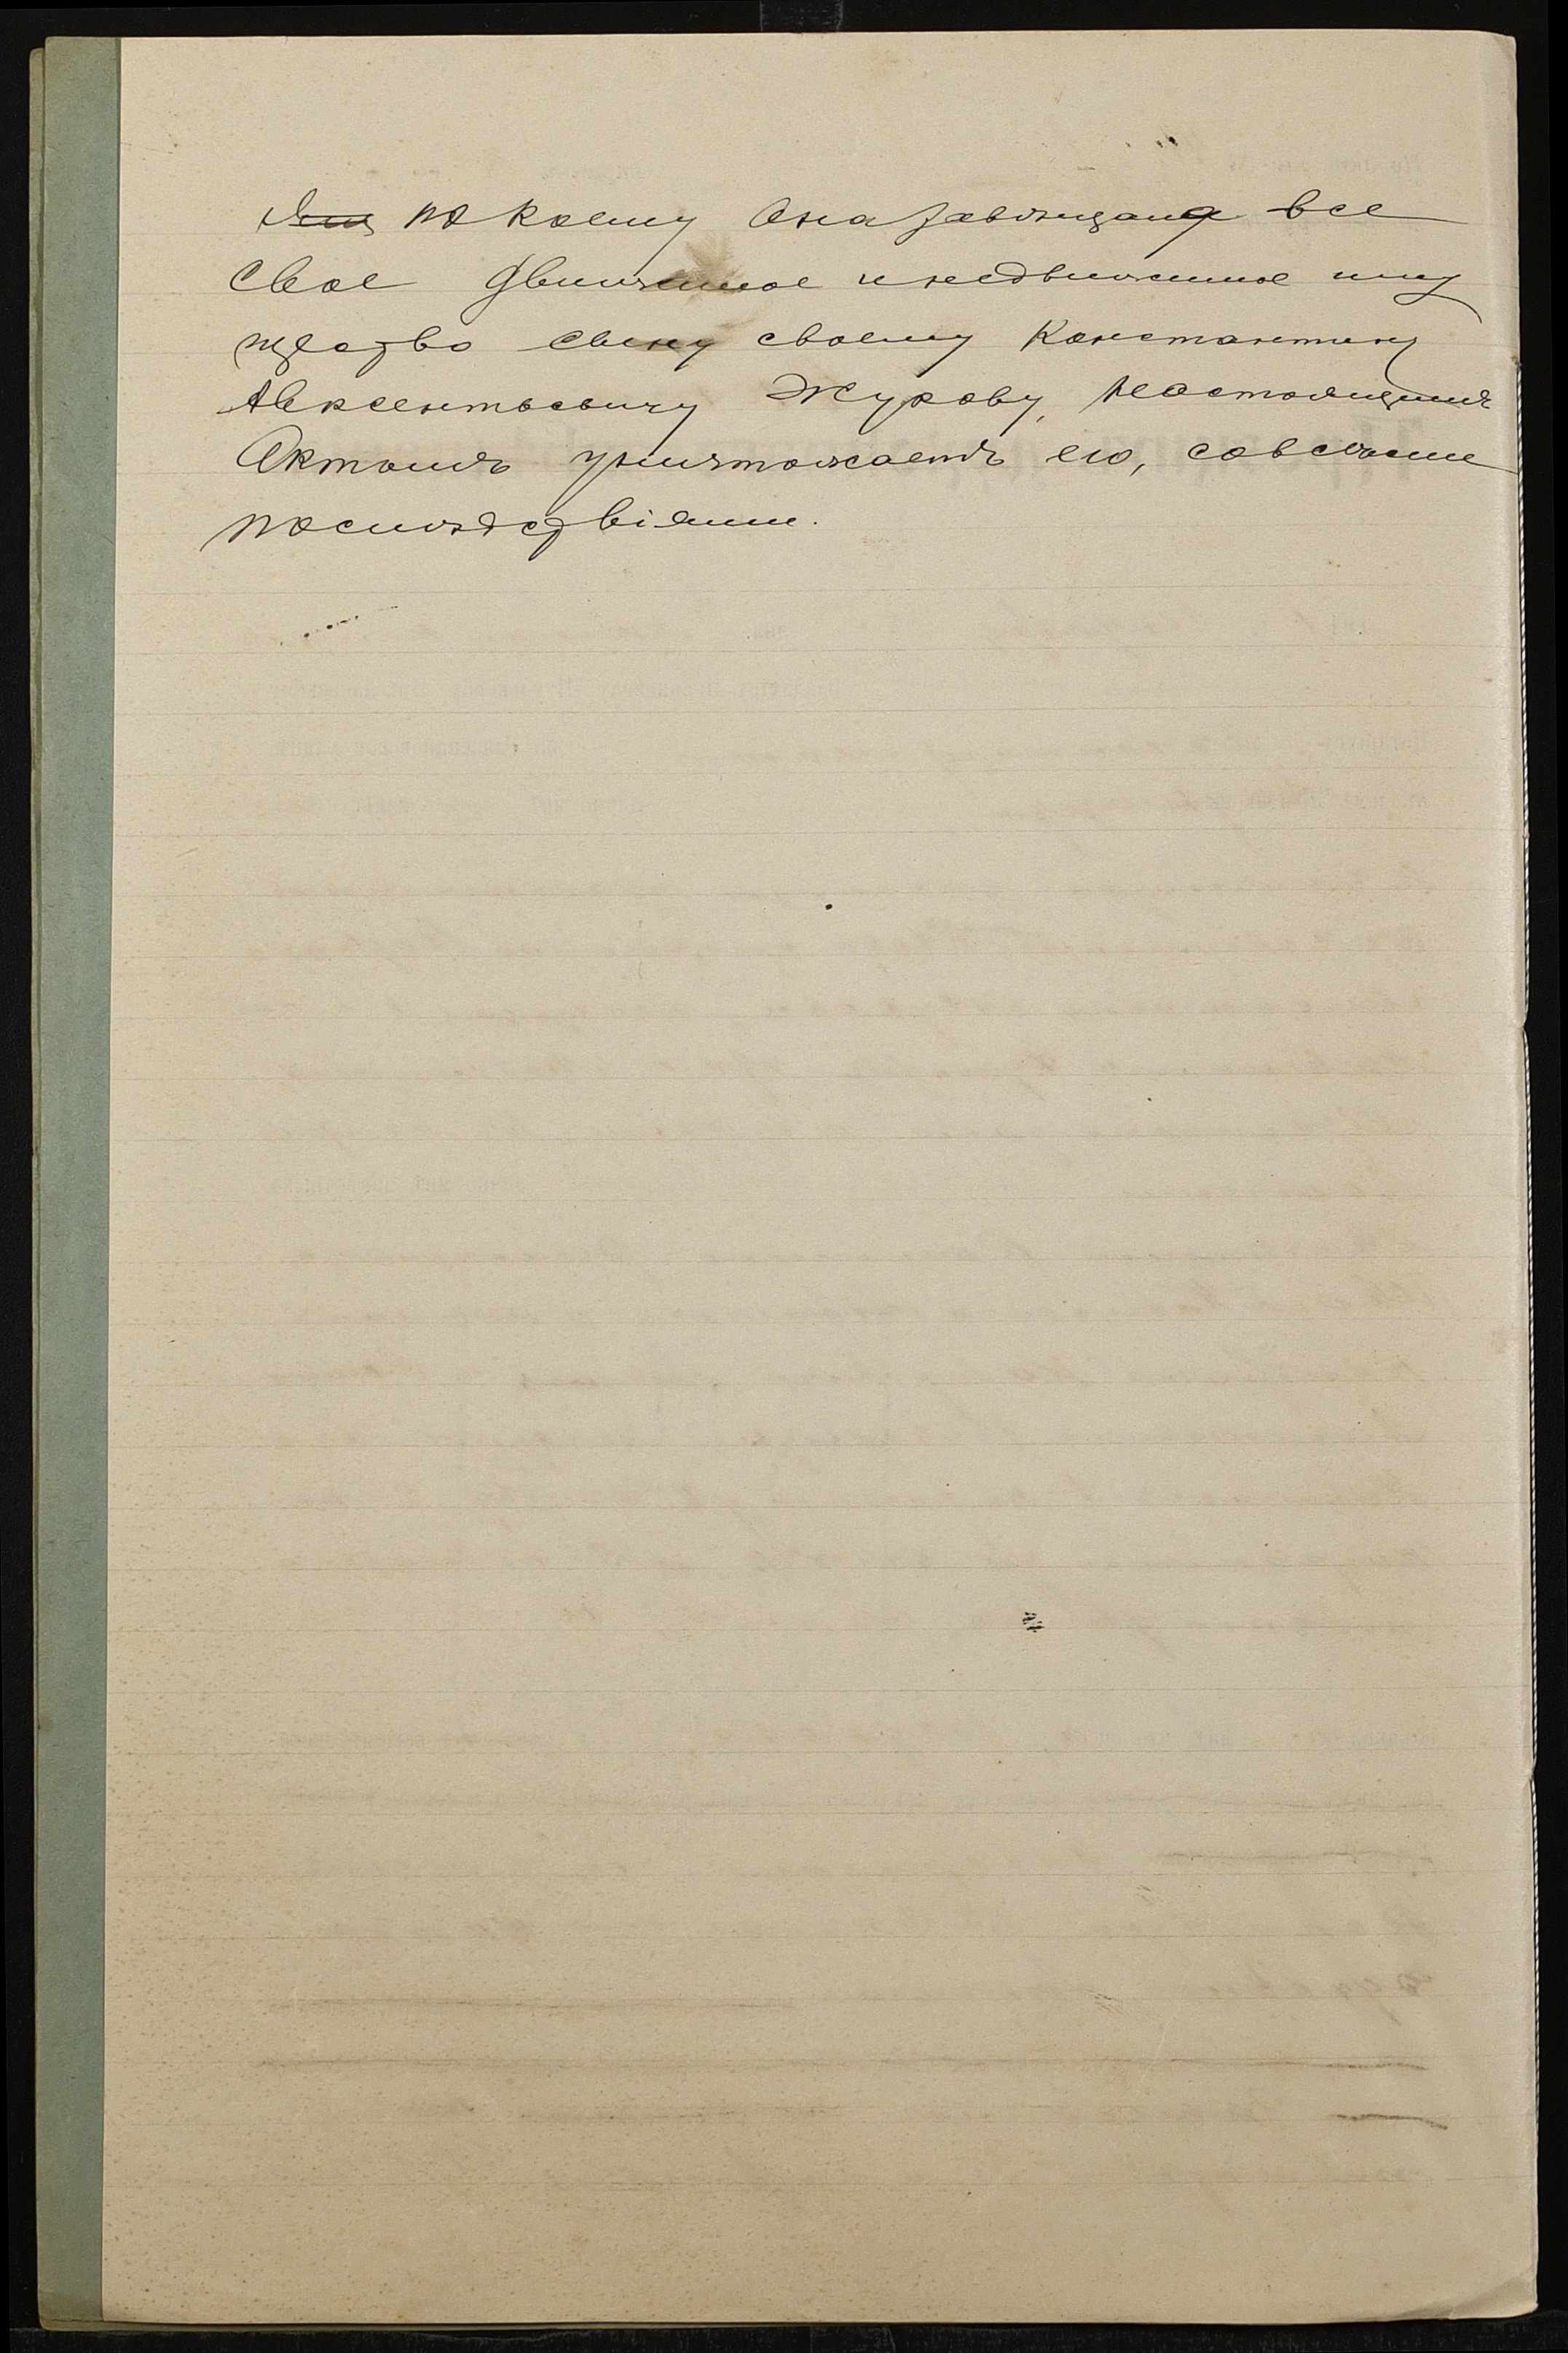 по коему Она завѣщала все
Свое движимое и недвижимое иму
щество сыну своему Константину
Авксентьевичу Жукову, настоящимъ
Актомъ уничтожаетъ его, со всѣми
послѣдствіями.